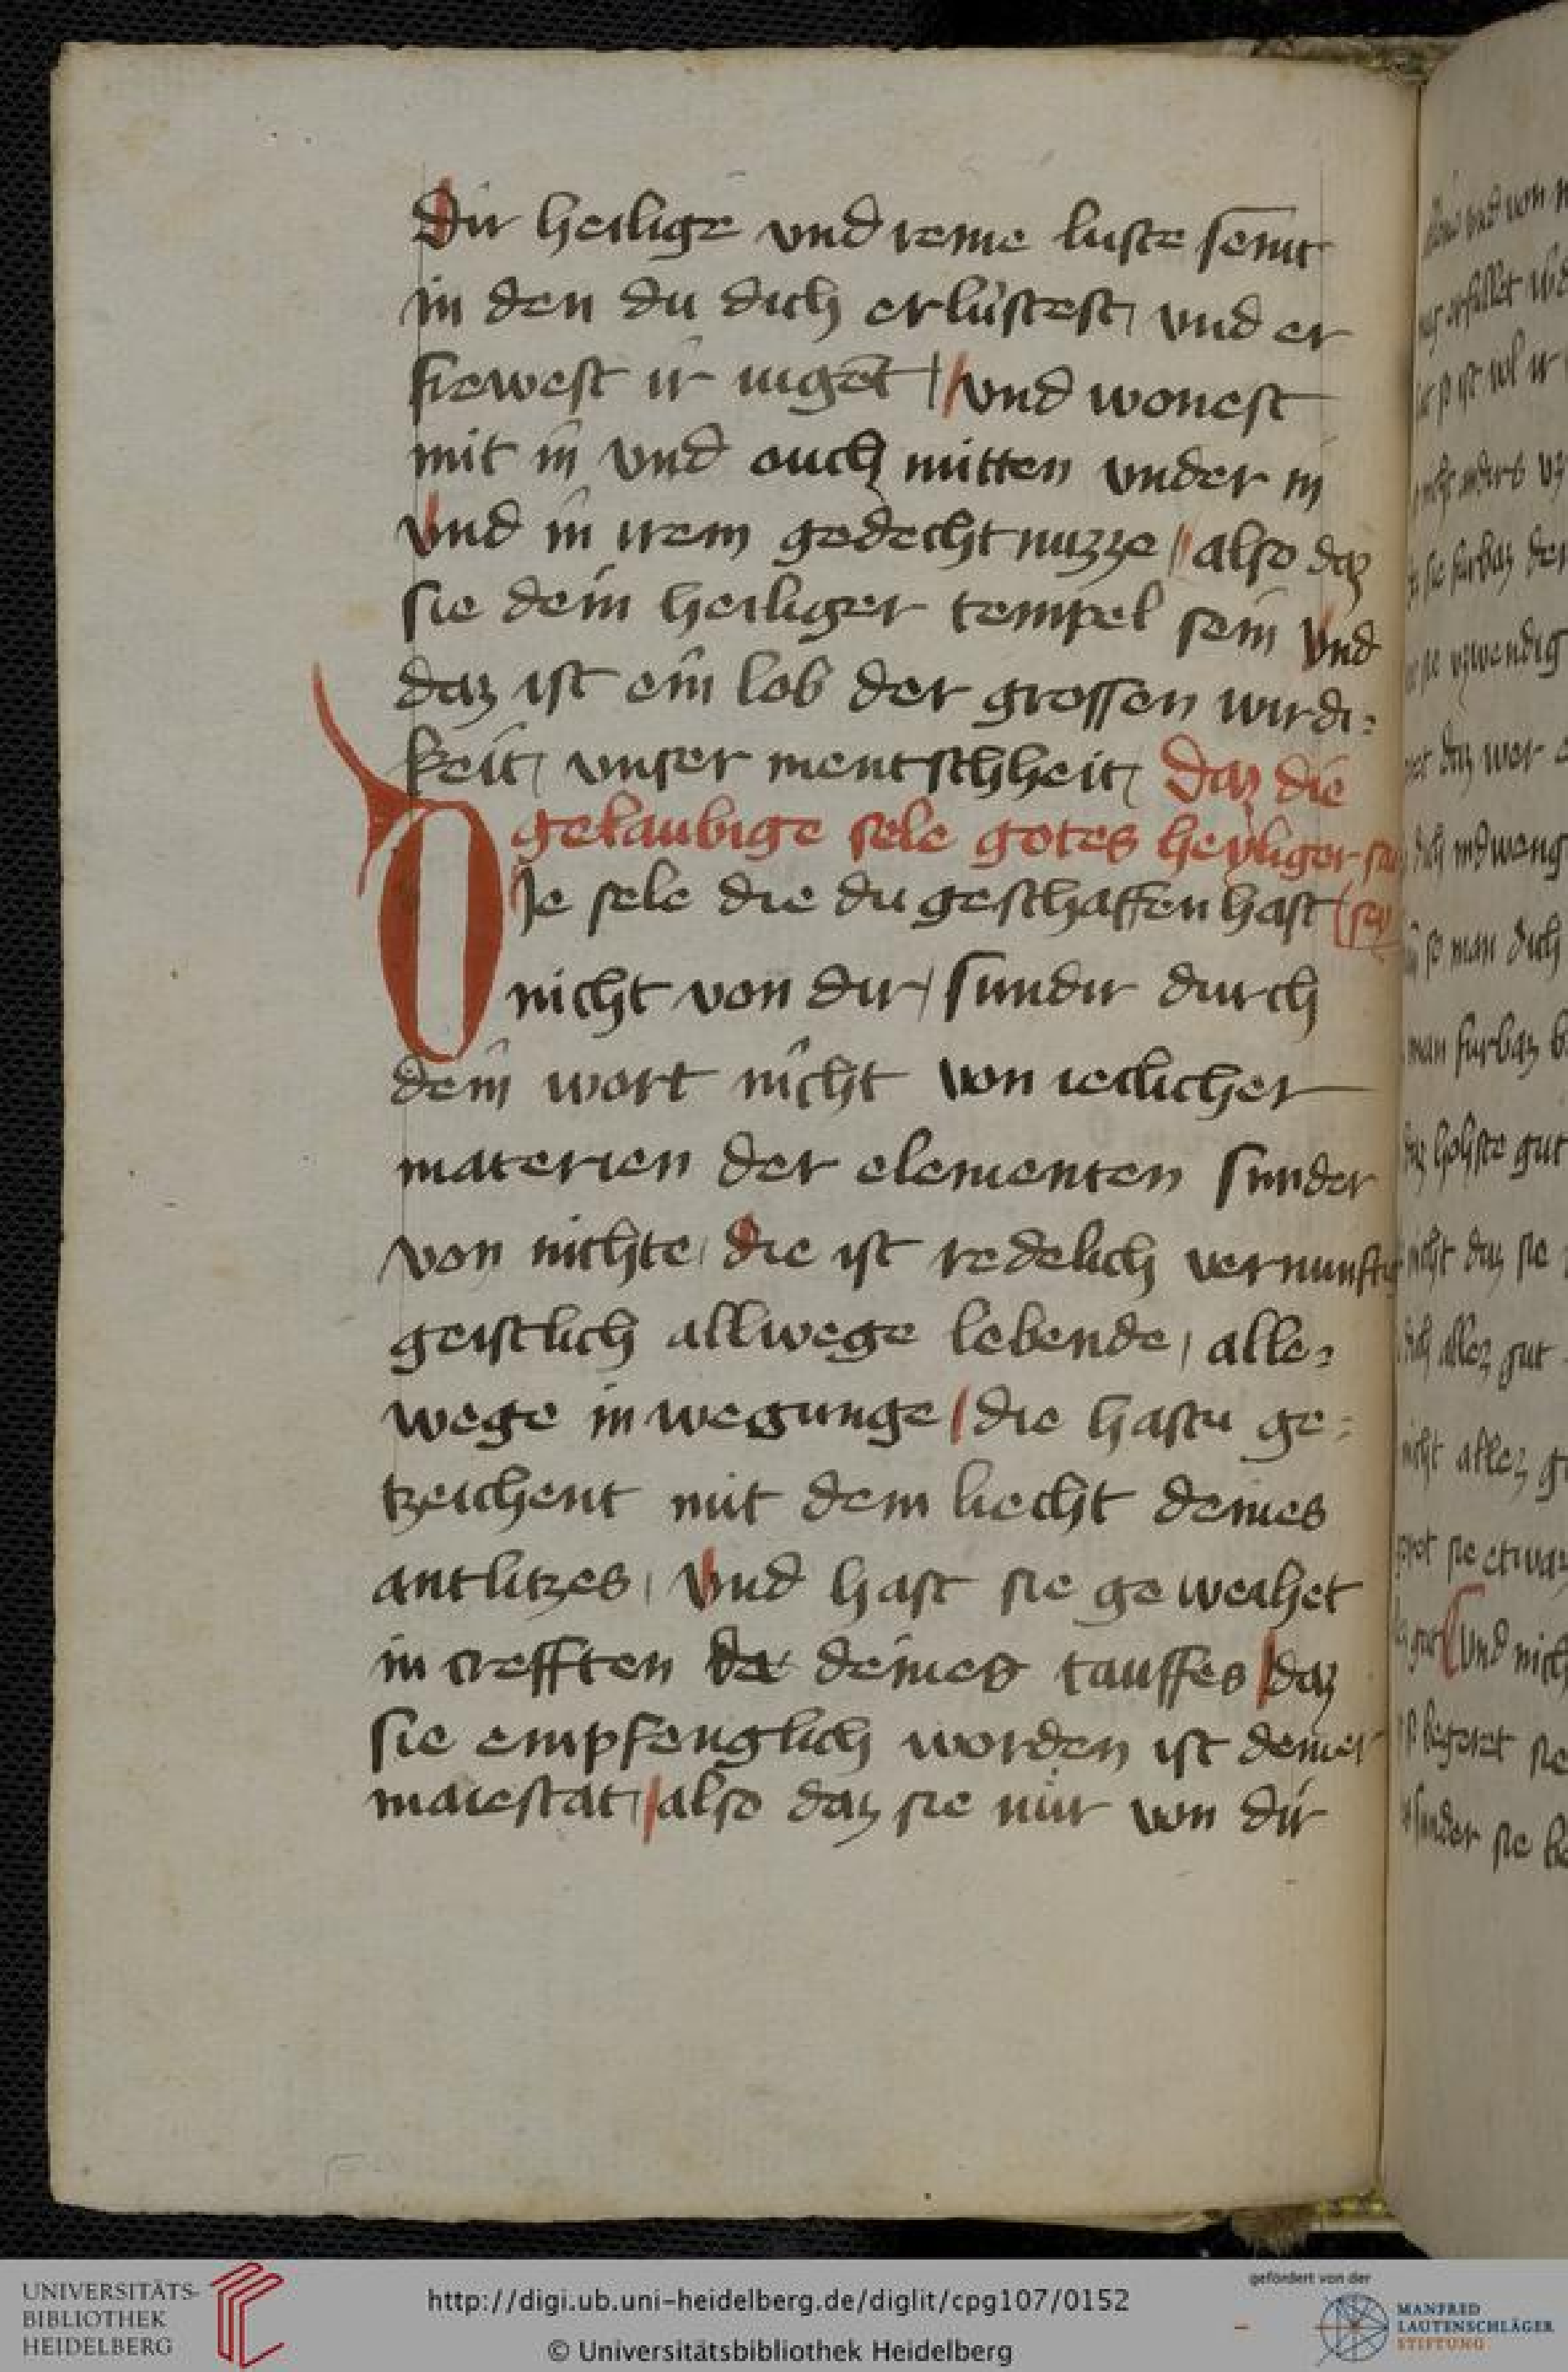 dir heilige vnd reine luste semt
in den du dich erlustest vnd er
frewest ir iugent vnd wonest
mit in vnd ouch mitten vnder in
vnd in irem gedechtnuzze also daz
sie dein heiliger tempel sein vnd
daz ist ein lob der grossen wirdi⸗
keit vnser mentschheit daz die
gelaubige sele gotes heyliger
DIe sele die du geschaffen hast
nicht von dir sunder durch
dein wort nicht von ieclicher
materien der elementen sunder
von nichte die ist redelich vernunftig
geistlich allwege lebende alle⸗
wege in wegunge die hastu ge⸗
tzeichent mit dem liecht deines
antlitzes vnd hast sie geweihet
in crefften deines tauffes daz
sie empfenglich worden ist deiner
maiestat also daz sie nur von dir
UNIVERSITÄTS-
BIBLIOTHEK
HEIDELBERG
http://digi.ub.uni-heidelberg.de/diglit/cpg107/0152
© Universitätsbibliothek Heidelberg
gefördert von der
MANFRED
LAUTENSCHLÄGER
STIFTUNG